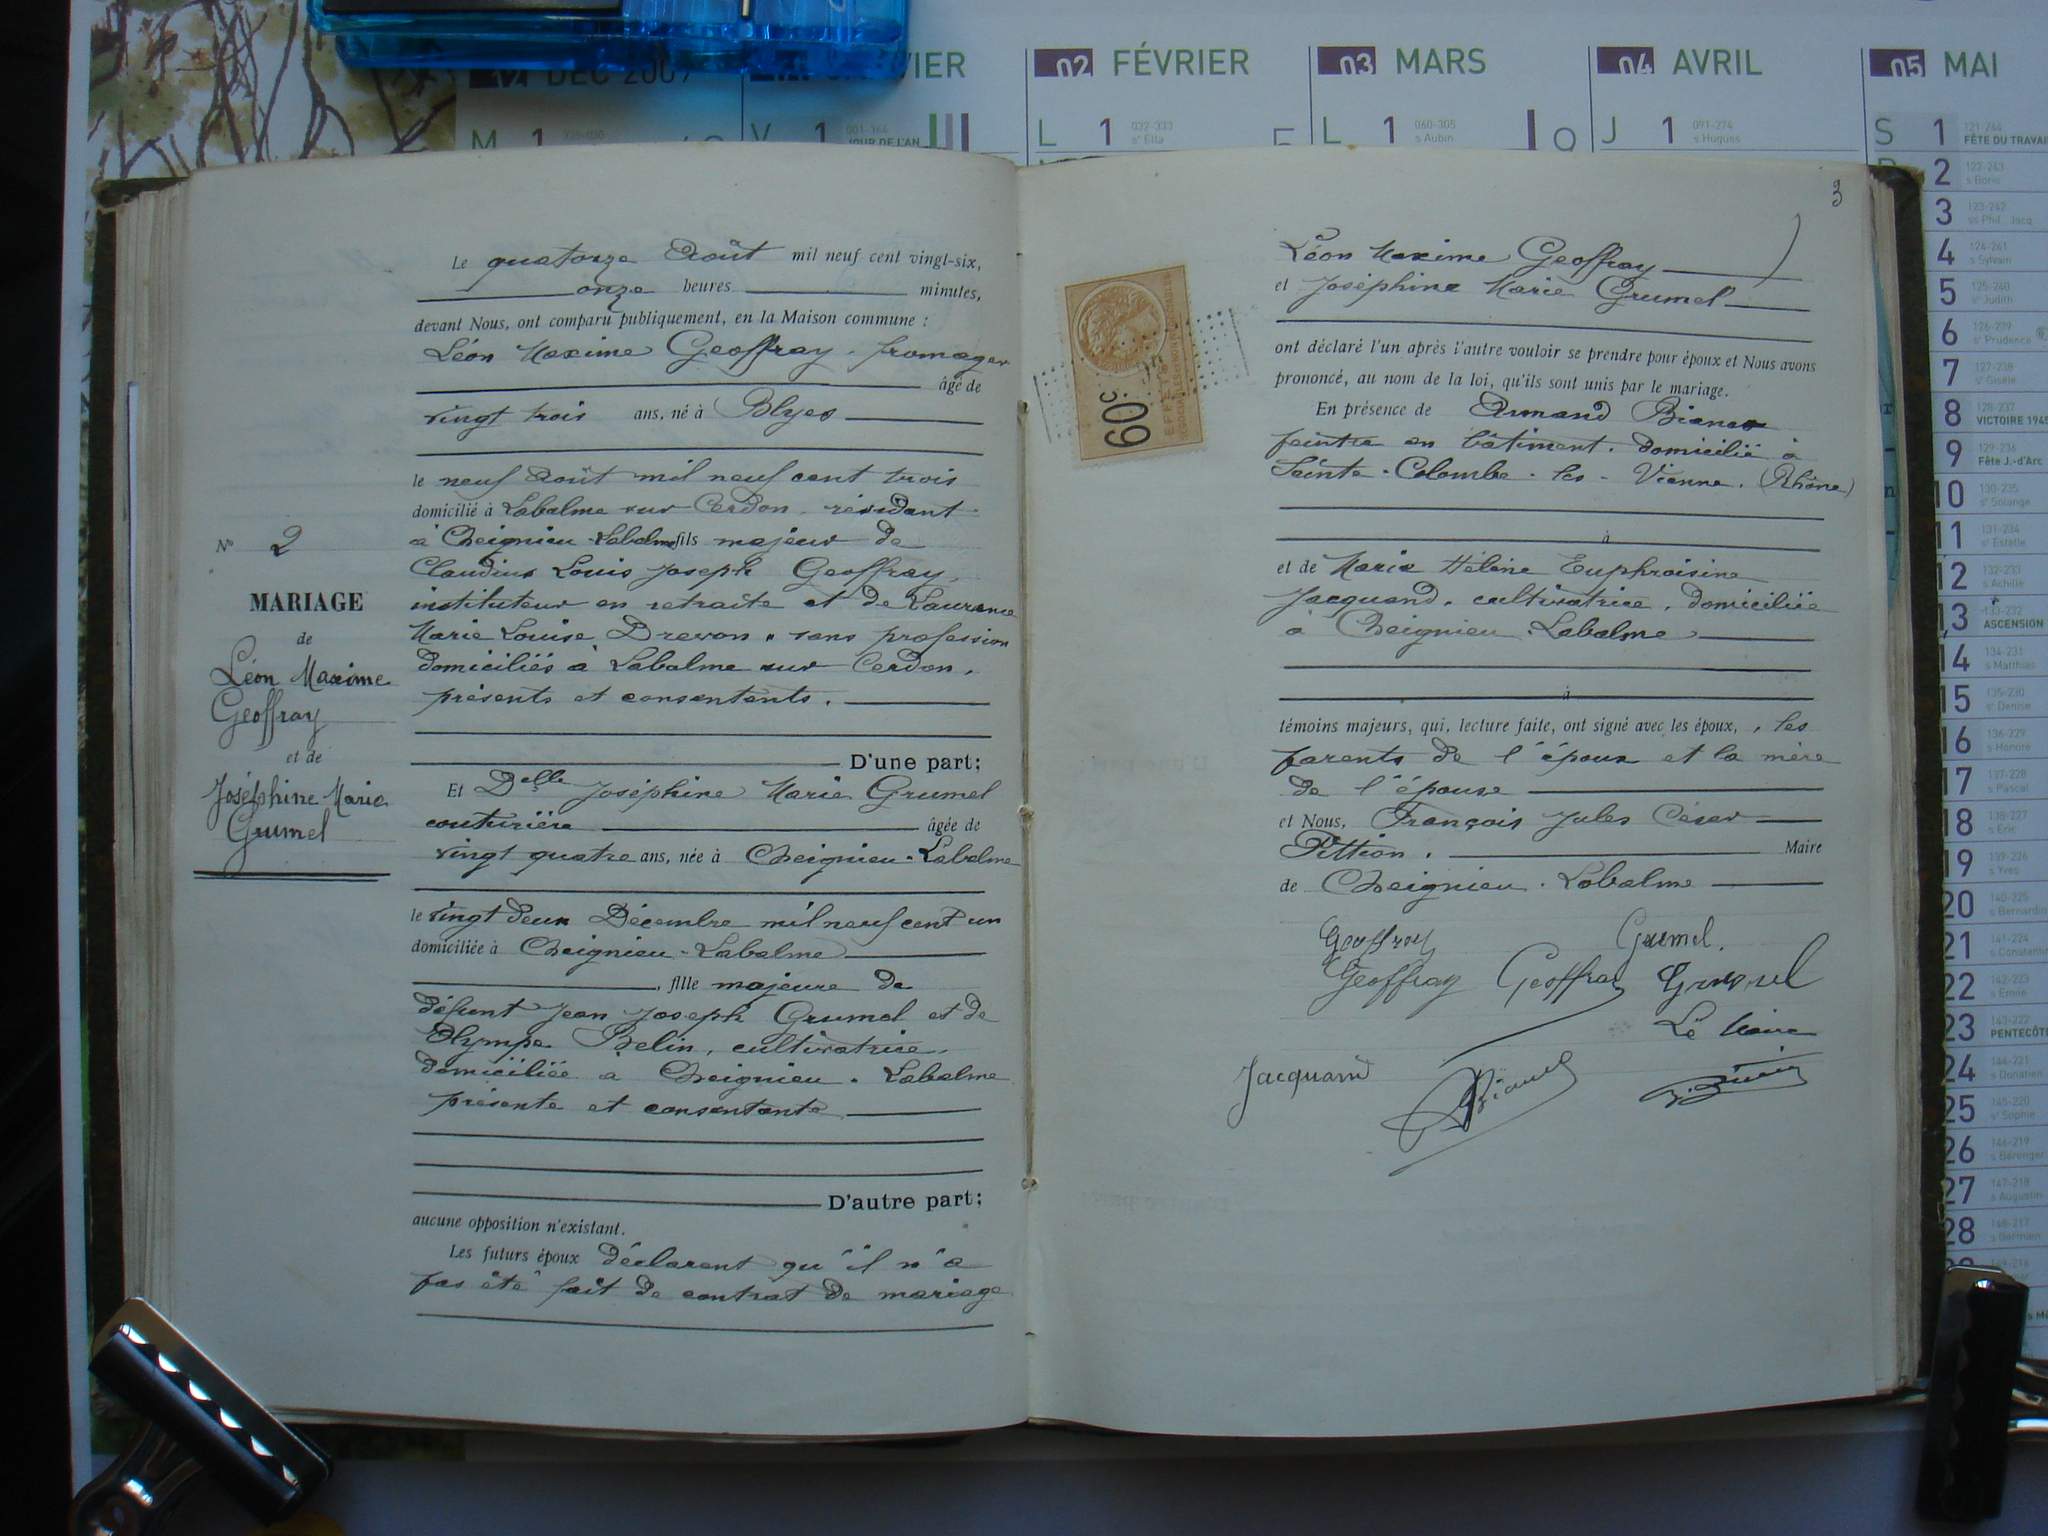 DEC 2009
VIER
02 FÉVRIER
03 MARS
04 AVRIL
05 MAI
M 1
V 1 001-364 JOUR DE L'AN
L 1 032-333 sᵉ Ella
L 1 060-305 s Aubin
J 1 091-274 s Hugues
S 1 121-244 FÊTE DU TRAVAIL
2 122-243 s Boris
3 123-242 ss Phil., Jacq.
4 124-241 s Sylvain
5 125-240 sᵉ Judith
6 126-239 sᵉ Prudence
7 127-238 sᵉ Gisèle
8 128-237 VICTOIRE 1945
9 129-236 Fête J.-d'Arc
10 130-235 sᵉ Solange
11 131-234 sᵉ Estelle
12 132-233 s Achille
13 133-232 ASCENSION
14 134-231 s Matthias
15 135-230 sᵉ Denise
16 136-229 s Honoré
17 137-228 s Pascal
18 138-227 s Eric
19 139-226 s Yves
20 140-225 s Bernardin
21 141-224 s Constantin
22 142-223 s Emile
23 143-222 PENTECÔTE
24 144-221 s Donatien
25 145-220 sᵉ Sophie
26 146-219 s Bérenger
27 147-218 s Augustin
28 148-217 s Germain
149-216
Nº 2
MARIAGE
de
Léon Maxime
Geoffray
et de
Joséphine Marie
Grumel
Le quatorze Août mil neuf cent vingt-six,
onze heures minutes,
devant Nous, ont comparu publiquement, en la Maison commune :
Léon Maxime Geoffray, fromager
âgé de
vingt trois ans, né à Blyes
le neuf Août mil neuf cent trois
domicilié à Labalme sur Cerdon, résidant
à Cheignieu-Labalme fils majeur de
Claudius Louis Joseph Geoffray,
instituteur en retraite et de Laurence
Marie Louise Drevon, sans profession
domiciliés à Labalme sur Cerdon,
présents et consentants.
D'une part;
Et Delle Joséphine Marie Grumel
couturière âgée de
vingt quatre ans, née à Cheignieu-Labalme
le vingt deux Décembre mil neuf cent un
domiciliée à Cheignieu-Labalme
, fille majeure de
défunt Jean Joseph Grumel et de
Olympe Belin, cultivatrice,
domiciliée à Cheignieu-Labalme
présente et consentante
D'autre part;
aucune opposition n'existant.
Les futurs époux déclarent qu'il n'a
pas été fait de contrat de mariage
3
60c
Léon Maxime Geoffray
et Joséphine Marie Grumel
ont déclaré l'un après l'autre vouloir se prendre pour époux et Nous avons
prononcé, au nom de la loi, qu'ils sont unis par le mariage.
En présence de Armand
peintre en bâtiment, domicilié à
Sainte-Colombe-les-Vienne, (Rhône)
à
et de Marie Hélène Euphroisine
Jacquand, cultivatrice, domiciliée
à Cheignieu-Labalme
à
témoins majeurs, qui, lecture faite, ont signé avec les époux, , les
parents de l'époux et la mère
de l'épouse
et Nous, François Jules César
Pittion, Maire
de Cheignieu-Labalme
Geoffray Grumel.
Geoffray Geoffray Grumel
Le Maire
Jacquand